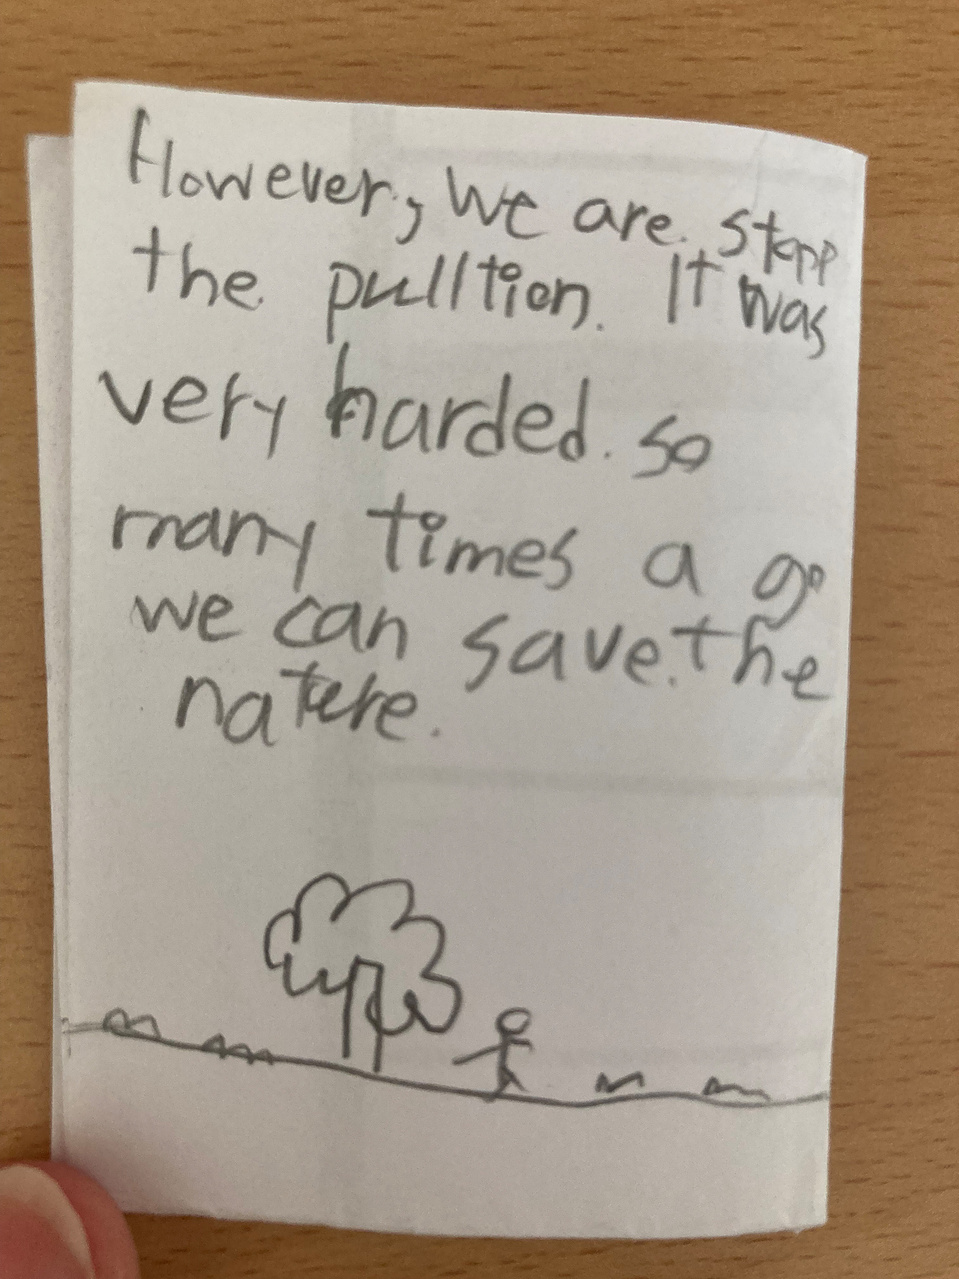 However, we are stopp
the pulltion. It was
very harded. so
many times a go
we can save the
nature.